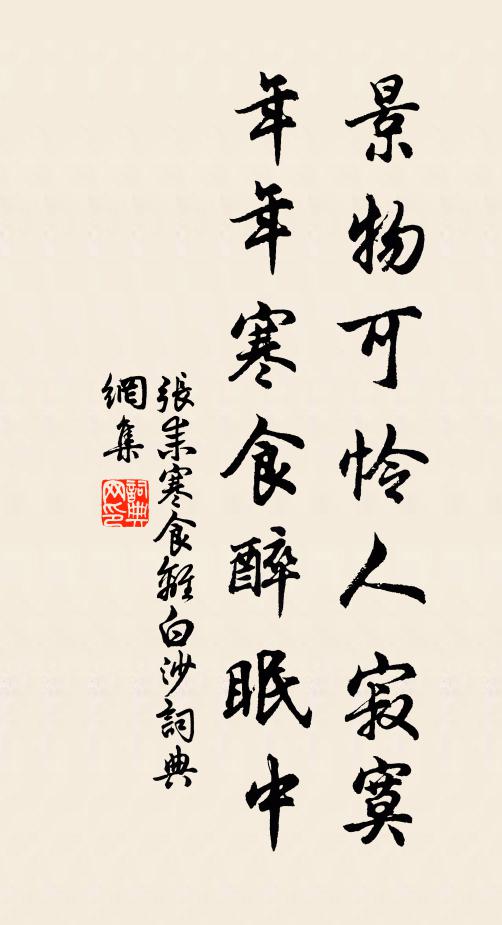 景物可怜人寂寞
年年寒食醉眠中
張耒寒食離白沙詞典
網集
詞典
网印